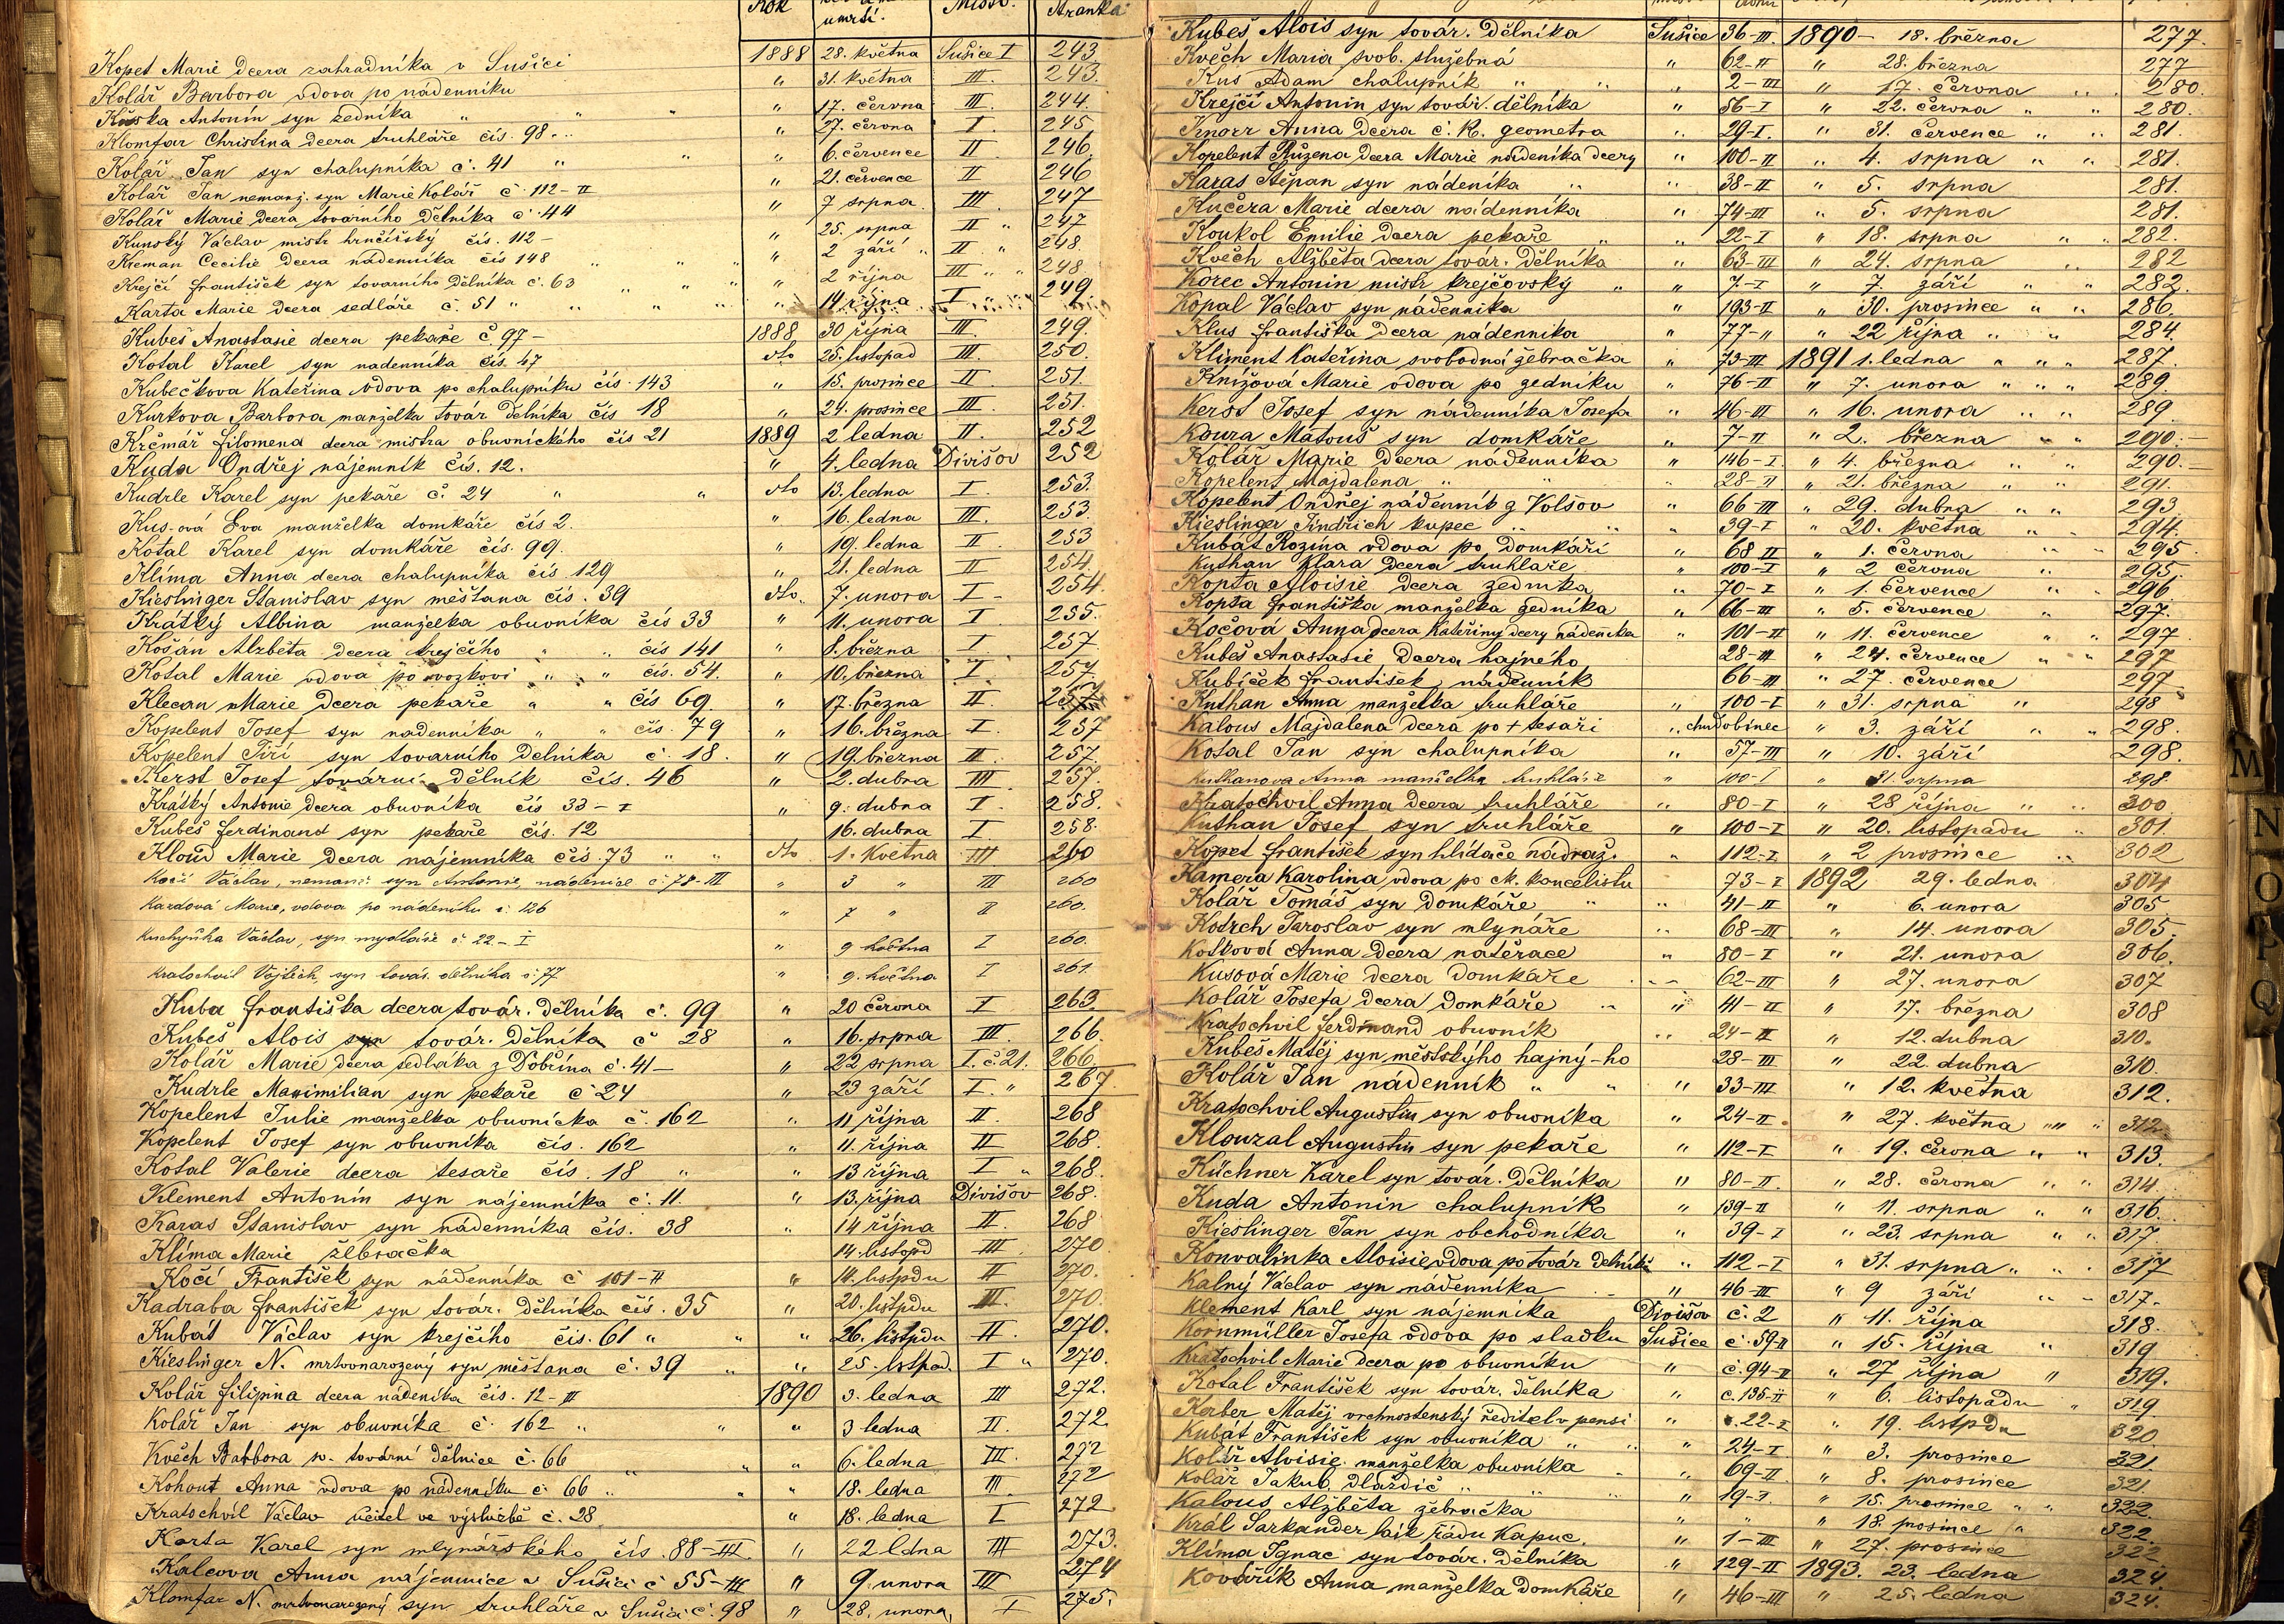 Rok umrtí. Místo. Stránka
Kopet Marie dcera zahradníka v Sušici 1888 28. května Sušice I 243
Kolář Barbora vdova po nádenníku " 31. května III. 243.
Antonín syn zedníka " " " 17. června III. 244.
Klomfar Christina dcera truhláře čís. 98. " 27. června I. 245
Kolář Jan syn chalupníka č. 41 " " " 6. července II 246.
Kolář Jan nemanž. syn Marie Kolář č. 112-II " 21. července II 246
Kolář Marie dcera továrního dělníka č. 44 " 7 srpna III. 247
Kunský Václav mistr hrnčířský čís. 112- " 25. srpna II " 247
Kreman Cecilie dcera nádenníka čís 148 " " " " 2 září " II " 248.
Krejčí František syn tovarního dělníka č. 63 " " " " 2 října III " " 248
Karta Marie dcera sedláře č. 51 " " " " " 14 října I " 249
Kubeš Anastasie dcera pekaře č. 97- 1888 30 října III. 249.
Kotal Karel syn nadenníka čís. 47 dto 25. listopad III. 250.
Kubečkova Kateřina vdova po chalupníku čís. 143 " 15. prosince II 251.
Kurkova Barbora manželka tovar dělníka čís 18 " 24. prosince III. 251.
Krčmář filomena dcera mistra obuvnického čís 21 1889 2 ledna II. 252
Kuda Ondřej nájemník čís. 12. " 4. ledna Divišov 252
Kudrle Karel syn pekaře č. 24 " " dto 13. ledna I. 253.
Kus-ová Eva manželka domkáře čís 2. " 16. ledna III. 253.
Kotal Karel syn domkáře čís. 99. " 19. ledna II. 253
Klíma Anna dcera chalupníka čís 129 " 21. ledna II 254.
Kieslinger Stanislav syn měštana čís. 39 dto. 7. unora I- 254.
Krátký Albina manželka obuvníka čís 33 " 11. unora I. 255.
Košán Alžběta dcera krejčího " " čís 141 " 8. března I. 257.
Kotal Marie vdova po vozkovi " " čís. 54. " 10. března I. 257.
Klecan Marie dcera pekaře " " čís 69. " 17. března II.
Kopelent Josef syn nadenníka " " čís. 79 " 16. března I 257
Kopelent Jiří syn tovarního Dělníka č. 18. " 19. března II. 257.
Kerst Josef tovární dělník čís. 46 " 2. dubna III 257.
Krátký Antonie dcera obuvníka čís 33-I " 9. dubna I. 258.
Kubeš ferdinand syn pekaře čís. 12 16. dubna I. 258.
Kloud Marie dcera nájemníka čís. 73 " " dto 1. Května III 260
Kočí Václav, nemanž. syn Antonie, nádenice č. 78-III " 3 " III 260
Kardová Marie, vdova po nádeníku č. 126 " 7 " II 260.
Kuchyňka Václav, syn mydláře č. 22-I " 9 května I 260.
Kratochvil Vojtěch, syn továr. dělníka č. 77 " 9. května I 261.
Kuba františka dcera továr. Dělníka č. 99 " 20 června I 263
Kubeš Alois syn továr. Dělníka č 28 " 16. srpna III. 266.
Kolář Marie dcera sedláka z Dobřína č. 41- " 22 srpna I. č. 21. 266.
Kudrle Maximilian syn pekaře č 24 " 23 září I. " 267.
Kopelent Julie manželka obuvníka č. 162 " 11 října II. 268
Kopelent Josef syn obuvníka čís. 162 " 11. října II 268.
Kotal Valerie dcera tesaře čís. 18 " " 13 října I " 268.
Klement Antonín syn nájemníka č. 11. " 13. října Divišov 268.
Karas Stanislav syn nádenníka čís. 38 " 14 října II. 268
Klíma Marie žebračka 14. listopd III. 270
Kočí František syn nádenníka č 101-II " 14. listpdu II 270.
Kadraba františek syn továr. dělníka čís. 35 " 20. listpdu III. 270.
Kubát Václav syn krejčího čís. 61 " " " 26. listpdu II. 270.
Kieslinger N. mrtvonarozený syn měštana č. 39 " " 25. listpad. I " 270.
Kolář filipina dcera nádeníka čís. 12-III 1890 3. ledna III 272.
Kolář Jan syn obuvníka č. 162 " " " 3 ledna II. 272.
Kvěch Babbora sv. tovární dělnice č. 66 " " " 6. ledna III. 272
Kohout Anna vdova po nádenníku č. 66 " " " 18. ledna III. 272
Kratochvíl Václav učitel ve výslužbě č. 28 " 18. ledna I 272
Karta Karel syn mlynářského čís. 88-III. " 22 ldna III 273.
Kalcova Anna nájemnice v Sušici č 55-III " 9. unora III 274
Klomfar N. mrtvonarozený syn truhláře v Sušici č. 98 " 28. unora, I 275.
Kubeš Alois syn továr. Dělníka Sušice 36-III. 1890- 18. března 277.
Kvěch Maria svob. služebná " 62-II " 28. března 277
Kus Adam chalupník " " 2-III " 17. června " 280.
Krejčí Antonín syn továr. dělníka " 56-I " 22. června " " 280.
Knorr Anna Dcera c. k. geometra " 29-I. " 31. července " " 281.
Kopelent Růžena dcera Marie nádeníka dcery " 100-II " 4. srpna " " 281.
Karas Štěpan syn nádeníka " " 38-II " 5. srpna 281.
Kučera Marie dcera nádenníka " 74-III " 5. srpna 281.
Koukol Emilie Dcera pekaře " " 22-I " 18. srpna " " 282.
Kvěch Alžběta dcera továr. Dělníka " 63-III " 24. srpna " 282
Korec Antonin mistr krejčovský " " 7-I " 7. září " " 282.
Kopal Václav syn nádenníka " 193-II " 30. prosince " " 286.
Klus františka Dcera nádenníka " 77-" " 22 října " " 284.
Kliment Kateřina svobodná žebračka " 73-III 1891 1. ledna " " 287.
Knížová Marie vdova po zedníku " 76-II " 7. unora " " " 289.
Kerst Josef syn nádenníka Josefa " 46-III " 16. unora " " 289.
Koura Matouš syn domkáře " 7-II " 2. března " " 290.-
Kolář Marie Dcera nádenníka " 146-I. " 4. března " " 290.-
Kopelent Majdalena " " " 28-II " 21. března " " 291.
Kopelent Ondřej nádenník z Volšov " 66-III " 29. dubna " " 293
Kieslinger Jindřich kupec " " 39-I " 20. května " " 294.
Kubát Rozina vdova po Domkáři " 68 II " 1. června " " 295.
Kuthan Klara Dcera truhláře " 100-I " 2 června " 295
Kopta Aloisie Dcera zedníka " 70-I " 1. července " " 296
Kopta františka manželka zedníka " 66-III " 5. července " 297.
Kočová Anna dcera Kateřiny dcery nádeníka " 101-II " 11. července " " 297.
Kubeš Anastasie Dcera hajného 28-III " 24. července " " 297
Kubíček františek nádenník 66-III " 27. července 297.
Kuthan Anna manželka truhláře " 100-I " 31. srpna " 298
Kalous Majdalena dcera po † tesaři " chudobinec " 3. září " " 298.
Kotal Jan syn chalupníka " 57-III " 10. září 298.
Kuthanova Anna manželka truhláře " 100-I " 31. srpna 298.
Kratochvil Anna Dcera truhláře " 80-I " 28 října " " 300
Kuthan Josef syn truhláře " 100-I " 20. listopadu " 301.
Kopet františek syn hlídače nádraž. " 112-I " 2 prosince " 302
Kamera Karolina, vdova po ck. kancelistu 73-I 1892 29. ledna 304
Kolář Tomáš syn domkáře " " 41-II " 6. unora 305
Kotrch Jaroslav syn mlynáře " 68-III " 14. unora 305.
Kotková Anna Dcera natěrace " 80-I " 21. unora 306.
Kusová Marie dcera Domkáře " 62-III " 27. unora 307
Kolář Josefa Dcera Domkáře " " 41-II " 17. března 308
Kratochvil ferdinand obuvník " 24-II " 12. dubna 310.
Kubeš Matěj syn městskýho hajný-ho 28-III " 22. dubna 310.
Kolář Jan nádenník " " " 33-III " 12. května 312.
Kratochvil Augustin syn obuvníka " 24-II. " 27. května " " 312.
Klouzal Augustin syn pekaře " 112-I " 19. června " " 313.
Küchner Karel syn továr. Dělníka " 80-II. " 28. června " " 314
Kuda Antonin chalupník " 139-II " 11. srpna " " 316.
Kieslinger Jan syn obchodníka " 39-I " 23. srpna " " 317.
Konvalinka Aloisie vdova po továr dělníku " 112-I " 31. srpna " " 317
Kalný Václav syn nádenníka " 46-III " 9 září " " 317.
Klement Karl syn nájemníka Divišov č. 2 " 11. října 318.
Kornmüller Josefa vdova po sladku Sušice č. 59-II " 15. října " 319
Kratochvil Marie dcera po obuvníku " č. 94-II " 27 října " 319.
Kotal František syn továr. dělníka " č. 135-II " 6. listopadu " 319
Kerber Matěj vrchnostenský ředitel v pensi " 22-I " 19. listpdu 320
Kubát František syn obuvníka " " " 24-I " 3. prosince 321
Kolář Aloisie manželka obuvníka " 69-II " 8. prosince 321.
Kolář Jakub, Dlaždič " " " 19-I " 15. prosince " " 322.
Kalous Alžběta žebračka " " " 18. prosince " 322.
Král Sarkander laik řádu Kapuc. " 1-III " 27. prosince 322
Klíma Ignac syn továr. Dělníka " 129-II 1893. 23. ledna 324.
Kovářík Anna manželka Domkáře " 46-III " 25. ledna 324.
M
N
O
P
Q